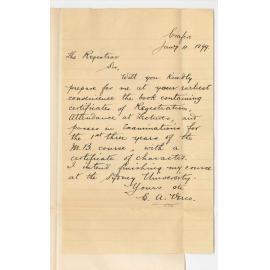 Crafer
Jany 11 1899
The Registrar
Sir,
Will you kindly
prepare for me at your earliest
convenience the book containing
certificates of Registration,
Attendance at Lectures, and
passes in Examinations for
the 1st three years of the
M.B. course, with a
certificate of character.
I intend finishing my course
at the Sydney University.
Yours etc
C. A. Verco.